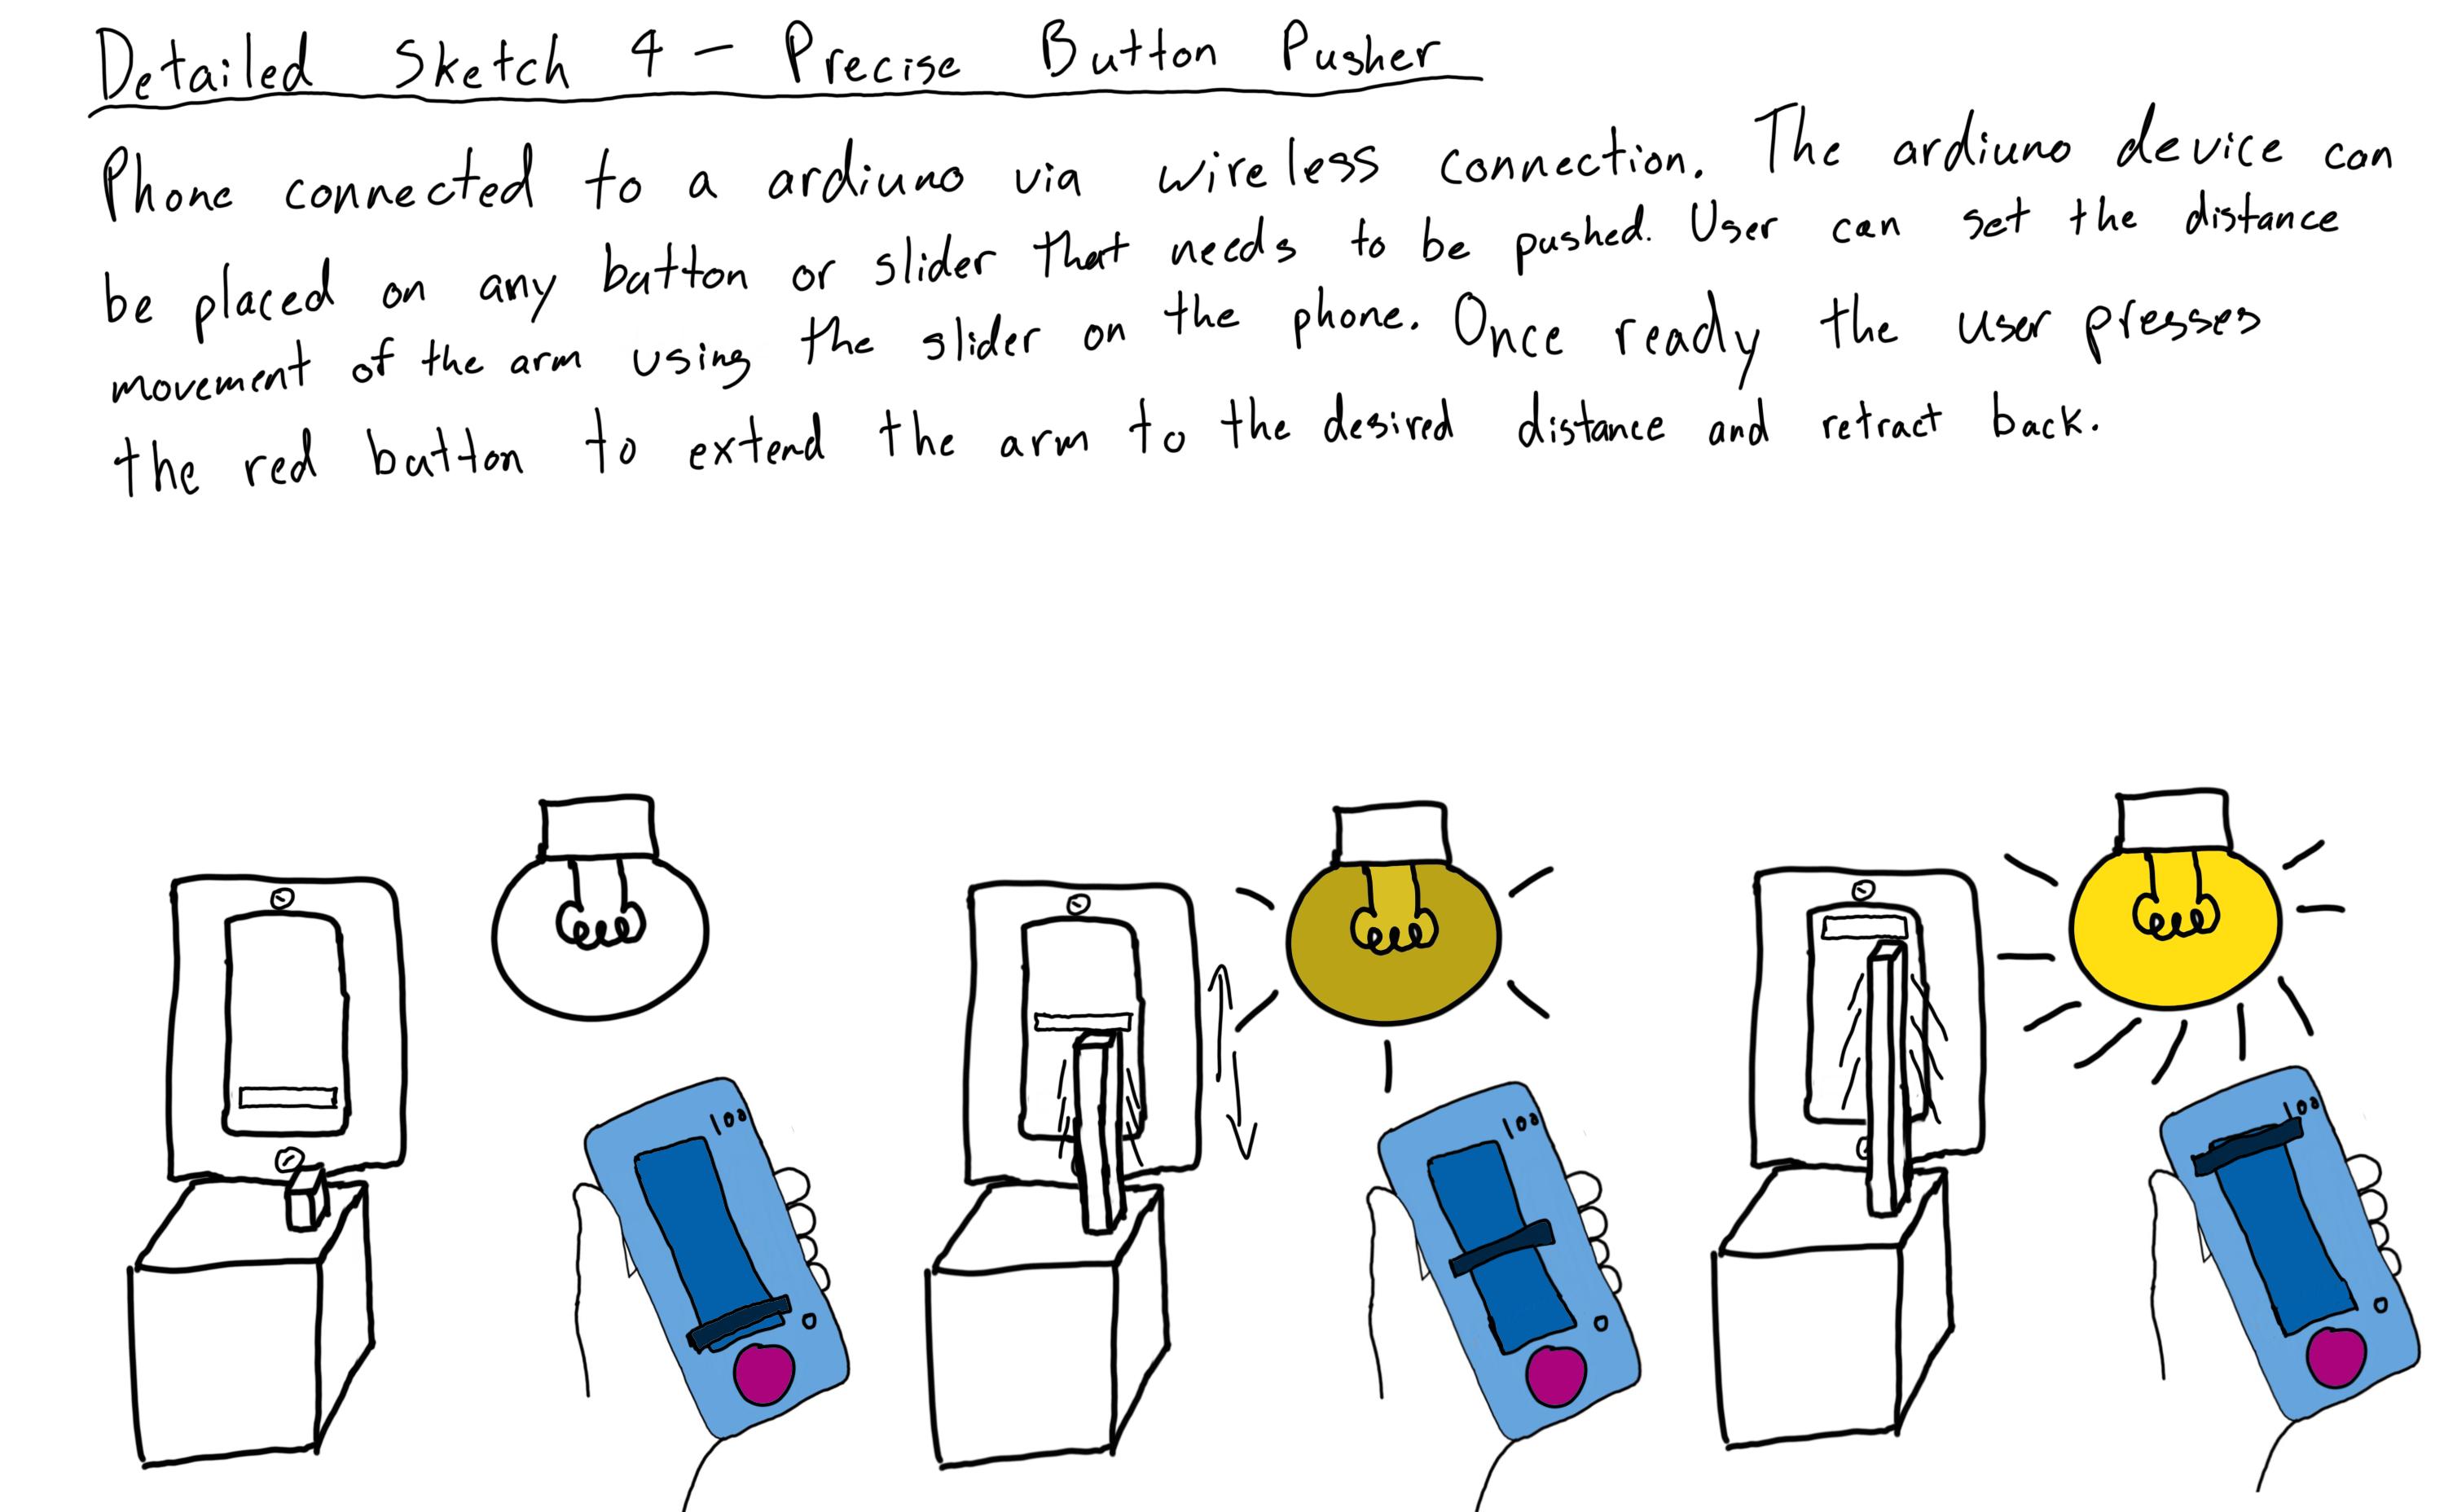 Detailed Sketch 4 – Precise Button Pusher
Phone connected to a ardiuno via wireless connection. The ardiuno device can
be placed on any button or slider that needs to be pushed. User can set the distance
movement of the arm using the slider on the phone. Once ready the user presses
the red button to extend the arm to the desired distance and retract back.
100
0
100
0
100
0